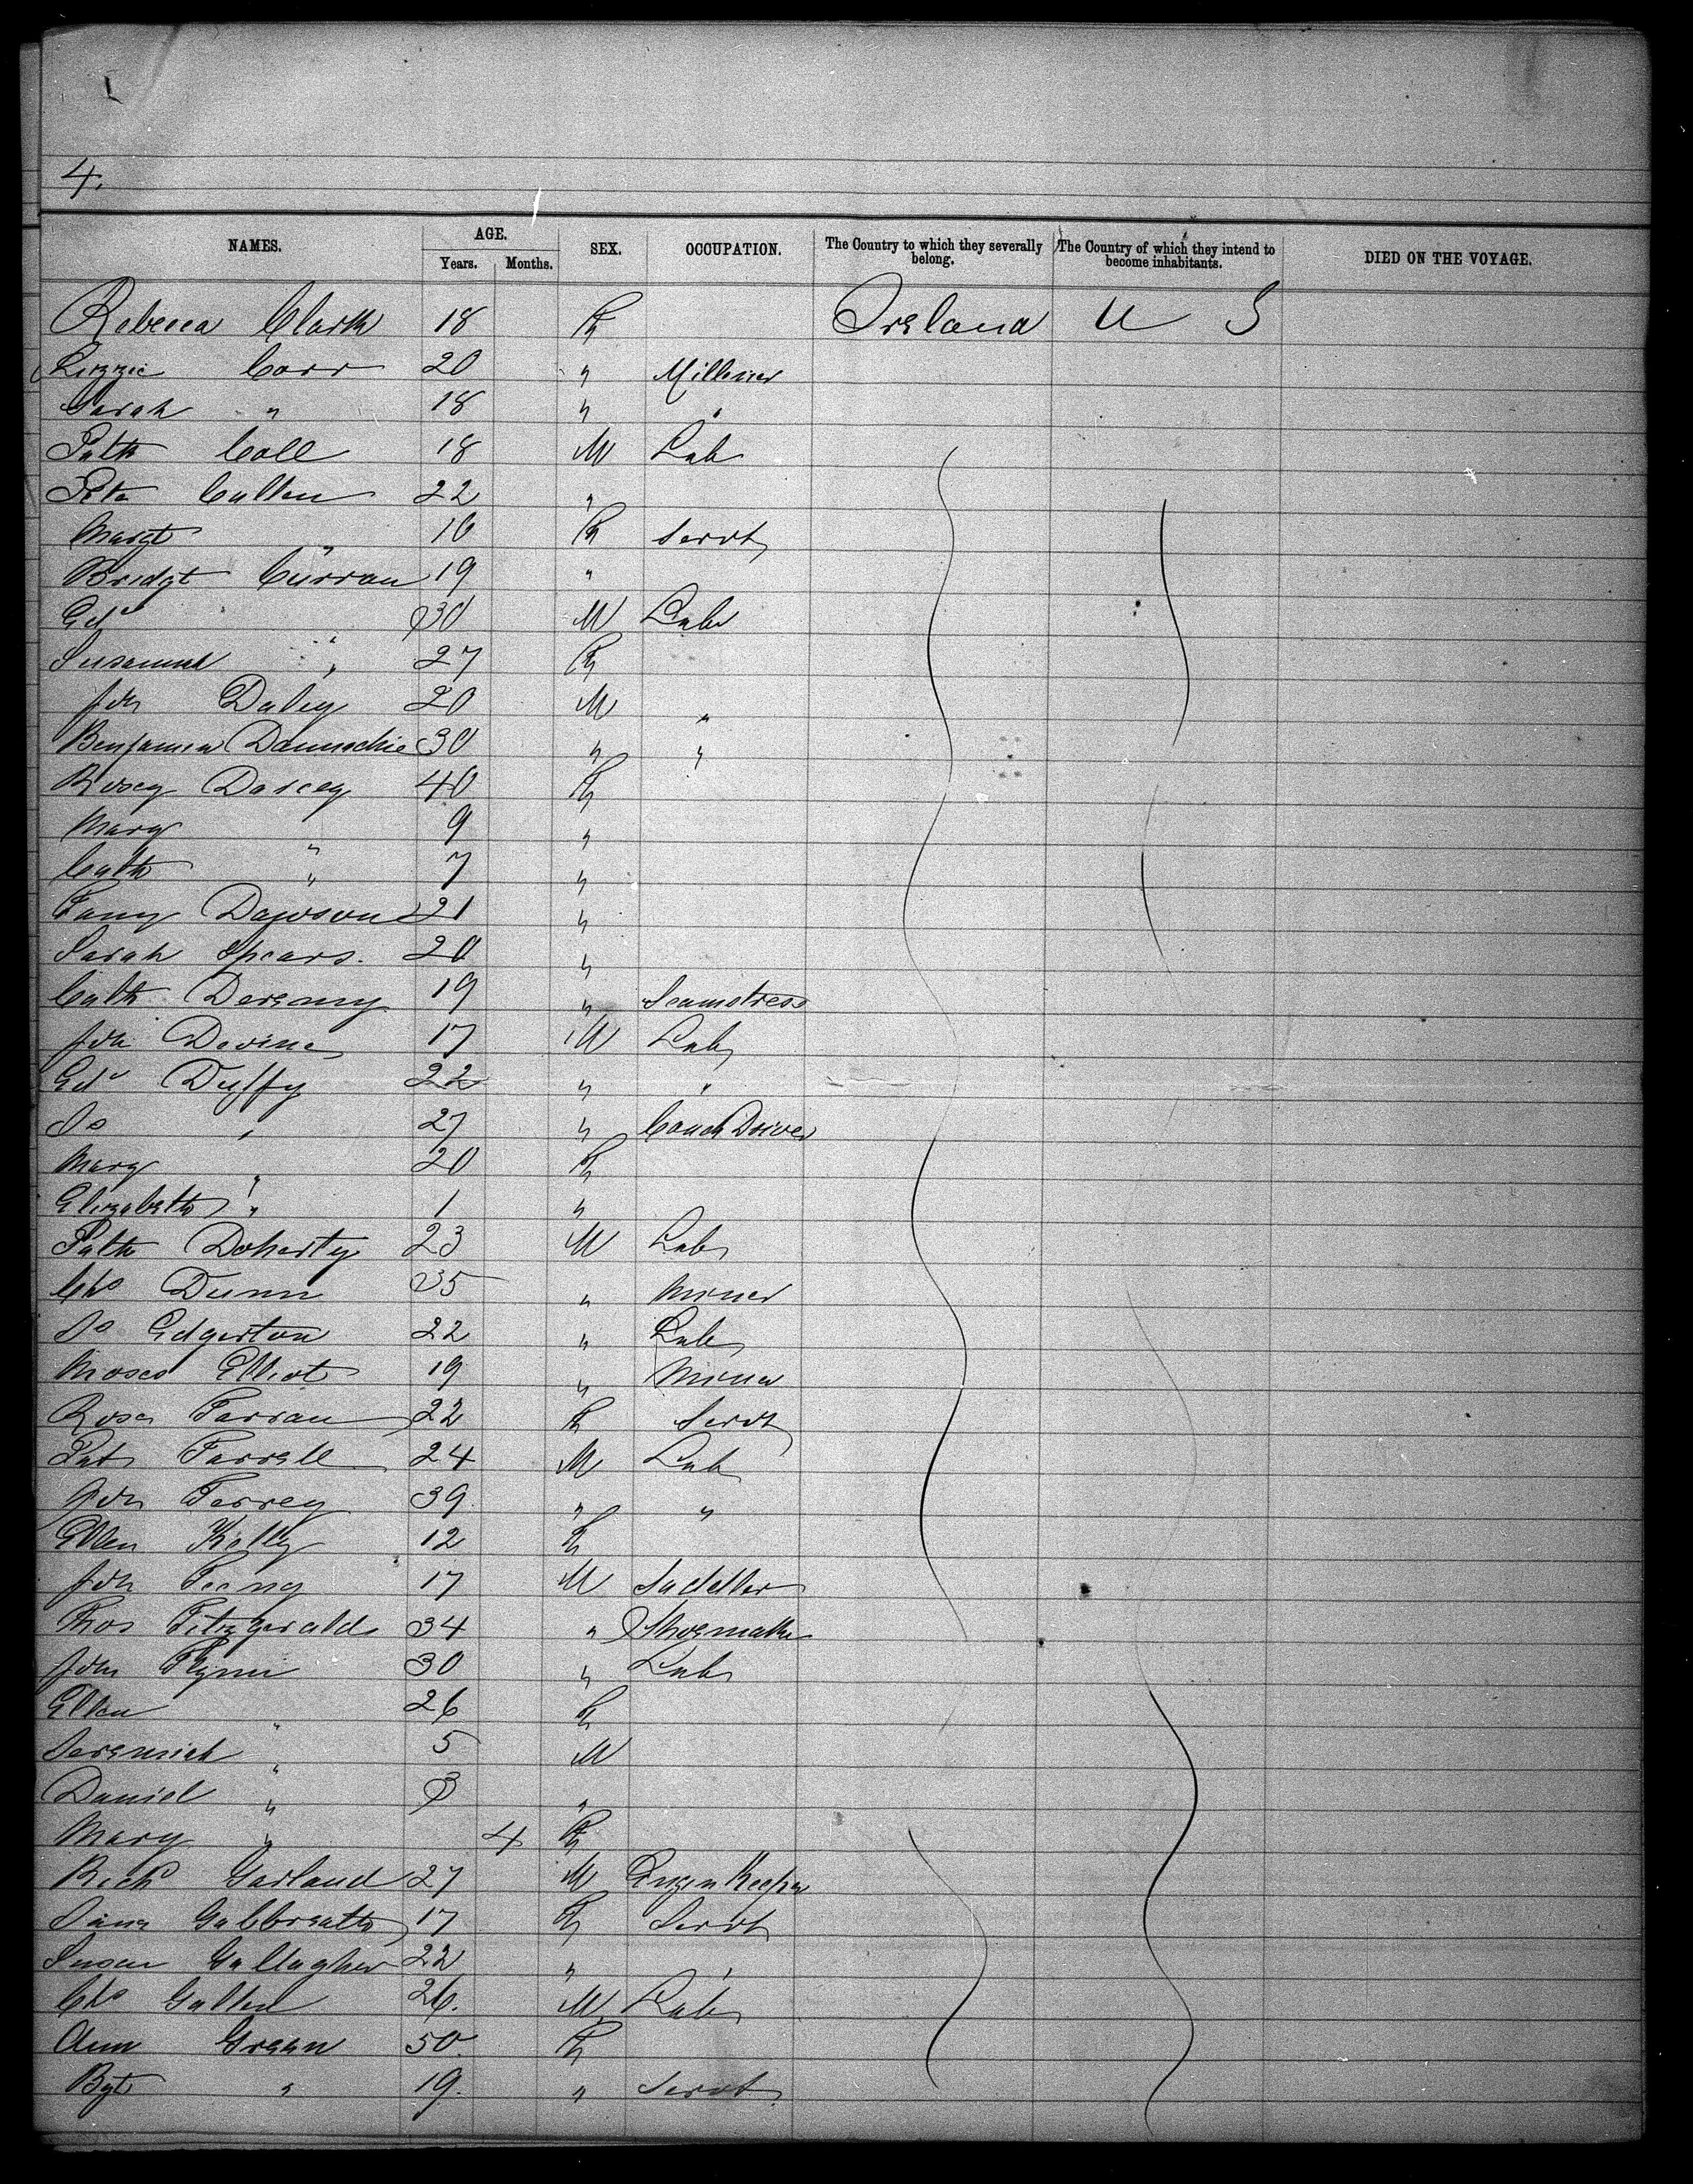 4.
NAMES. AGE. SEX. OCCUPATION. The Country to which they severally belong. The Country of which they intend to become inhabitants. DIED ON THE VOYAGE.
Years. Months.
Rebecca Clark 18 F Ireland U S
Lizzie Carr 20 " Milliner
Sarah " 18 " "
Patk Coll 18 M Lab
Pete Cullen 22 "
Margt " 16 F Servt
Bridgt Curran 19 "
Edd " 30 M Lab
Susannah " 27 F
Jon Daley 20 M "
Benjamin 30 " "
Rosey Darcey 40 F
Mary " 9 "
Cath " 7 "
Fanny Dawson 21 "
Sarah Spears. 20 "
Cath 19 " Seamstress
Jon Devine 17 M Lab
Edd Duffy 22 " "
Do " 27 " Coach Driver
Mary " 20 F
Elizabeth " 1 "
Patk Doherty 23 M Lab
Chs Dunn 35 " Miner
Do Edgerton 22 " Lab
Moses Elliot 19 " Miner
Rose Farran 22 F Servt
Pat Farrell 24 M Lab
Jon Ferrey 39 " "
Ellen Kelly 12 F
Jon Feeny 17 M Saddler
Thos Fitzgerald 34 " Shoemaker
John Flynn 30 " Lab
Ellen " 26 F
Jeremiah " 5 M
Daniel " 3 "
Mary " 4 F
Richd Garland 27 M Engin Keeper
Jane Galbreath 17 F Servt
Susan Gallagher 22 " "
Chs 26. M Lab
Ann Green 50. F
Bgt " 19. " Servt